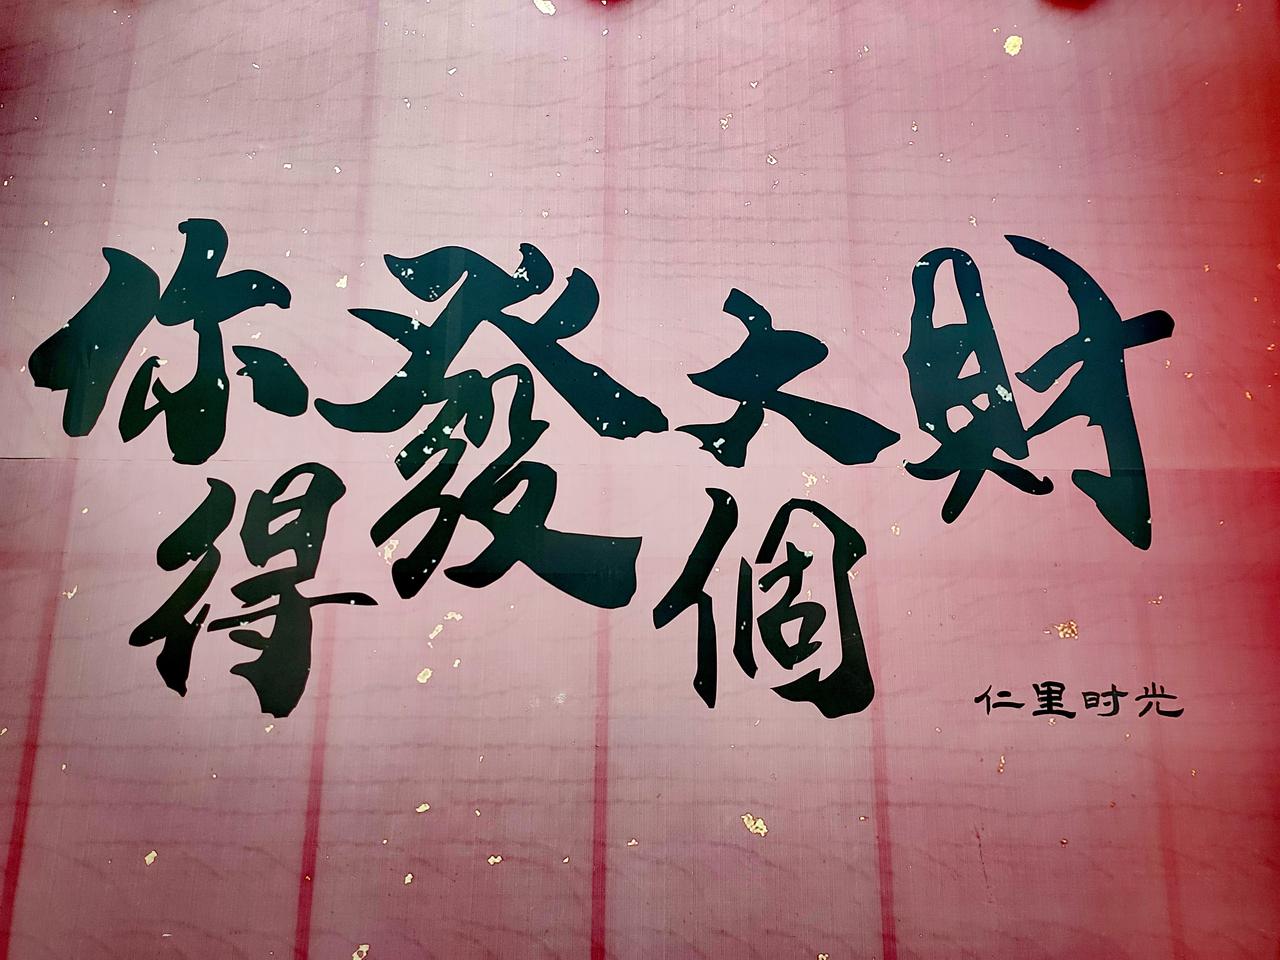 你發大財
得個
仁里时光